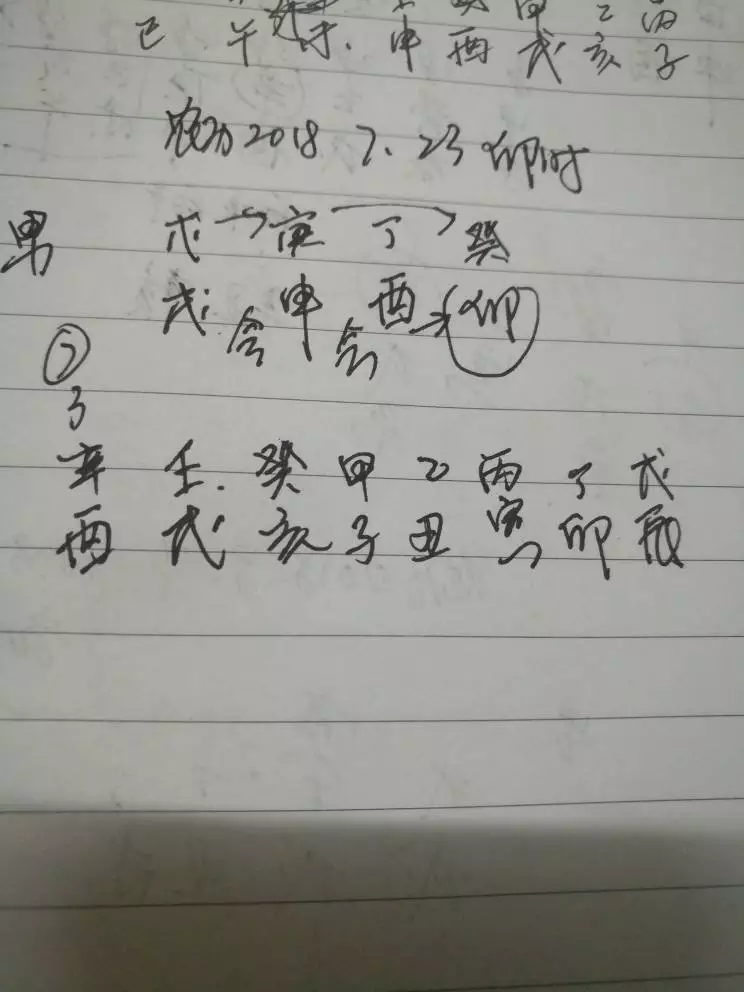 甲 乙 丙
巳 午 申 酉 戌 亥 子
农历2018 7.23 卯时
男 戊 庚 丁 癸
戌 会 申 会 酉 卯
3
辛 壬. 癸 甲 乙 丙 丁 戊
酉 戌 亥 子 丑 寅 卯 辰